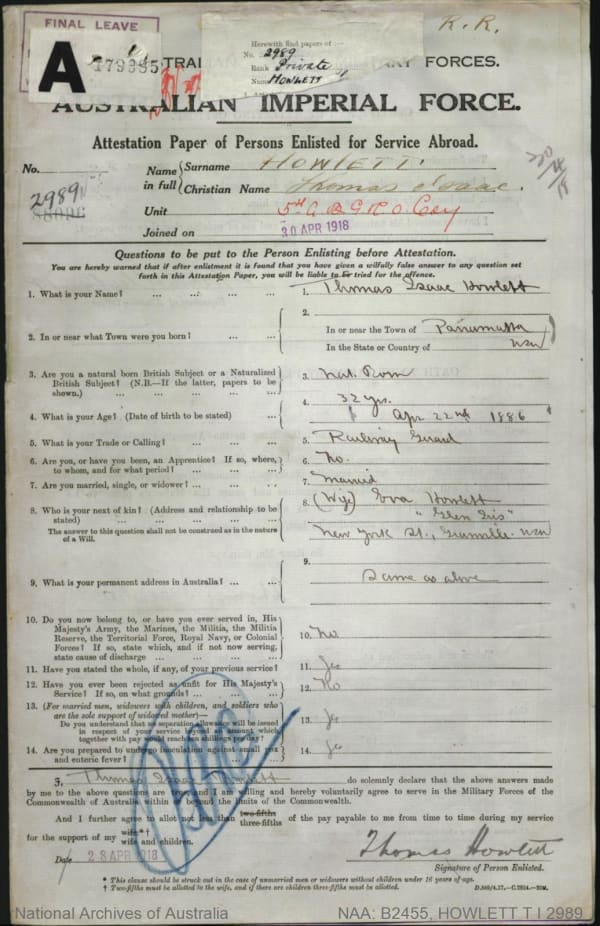 FINAL LEAVE
A
179995
Herewith 2nd papers of :—
No. 2989
Rank Private
Name HOWLETT
R.R.
TRAL
ARY FORCES.
AUSTRALIAN IMPERIAL FORCE.
Attestation Paper of Persons Enlisted for Service Abroad.
No. 2989
Name in full { Surname HOWLETT.
Christian Name Thomas Isaac.
Unit 5th A B G R O Coy
Joined on 30 APR 1918
Questions to be put to the Person Enlisting before Attestation.
You are hereby warned that if after enlistment it is found that you have given a wilfully false answer to any question set
forth in this Attestation Paper, you will be liable to be tried for the offence.
1. What is your Name? ... ... ... ... 1. Thomas Isaac Howlett
2. In or near what Town were you born? ... ... 2. In or near the Town of Parramatta
In the State or Country of NSW
3. Are you a natural born British Subject or a Naturalized
British Subject? (N.B.—If the latter, papers to be
shown.) ... ... ... ... 3. Nat. Born
4. What is your Age? (Date of birth to be stated) ... 4. 32 yrs.
Apr 22nd 1886
5. What is your Trade or Calling? ... ... ... 5. Railway Guard
6. Are you, or have you been, an Apprentice? If so, where,
to whom, and for what period? ... ... ... 6. No.
7. Are you married, single, or widower? ... ... 7. Married
8. Who is your next of kin? (Address and relationship to be
stated) ... ... ... ... 8. (Wife) Eva Howlett
"Glen Iris"
The answer to this question shall not be construed as in the nature
of a Will. New York St., Granville. NSW
9. What is your permanent address in Australia? ... ... 9. Same as above
10. Do you now belong to, or have you ever served in, His
Majesty's Army, the Marines, the Militia, the Militia
Reserve, the Territorial Force, Royal Navy, or Colonial
Forces? If so, state which, and if not now serving,
state cause of discharge ... ... ... ... 10. No
11. Have you stated the whole, if any, of your previous service? 11. Yes
12. Have you ever been rejected as unfit for His Majesty's
Service? If so, on what grounds? ... ... ... 12. No
13. (For married men, widowers with children, and soldiers who
are the sole support of widowed mother)—
Do you understand that no separation allowance will be issued
in respect of your service beyond an amount which
together with pay would reach shillings per day? 13. Yes
14. Are you prepared to undergo inoculation against small pox
and enteric fever? ... ... ... 14. Yes
I, Thomas Isaac Howlett do solemnly declare that the above answers made
by me to the above questions are true, and I am willing and hereby voluntarily agree to serve in the Military Forces of the
Commonwealth of Australia within or beyond the limits of the Commonwealth.
And I further agree to allot not less than two-fifths three-fifths of the pay payable to me from time to time during my service
for the support of my wife*† wife and children.
Date 28 APR 1918
Thomas Howlett
Signature of Person Enlisted.
* This clause should be struck out in the case of unmarried men or widowers without children under 16 years of age.
† Two-fifths must be allotted to the wife, and if there are children three-fifths must be allotted.
National Archives of Australia
NAA: B2455, HOWLETT T I 2989